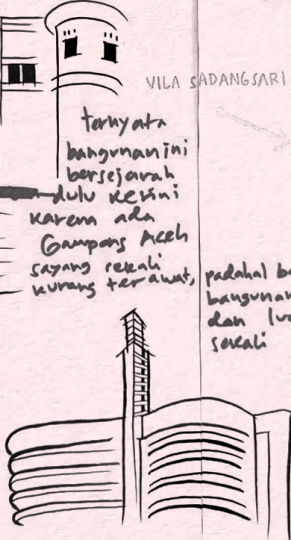 VILA SADANGSARI
ternyata
bangunan ini
bersejarah
dulu kesini
karena ada
Gampong Aceh
sayang sekali
kurang terawat,
padahal
bangunan
dan
sekali